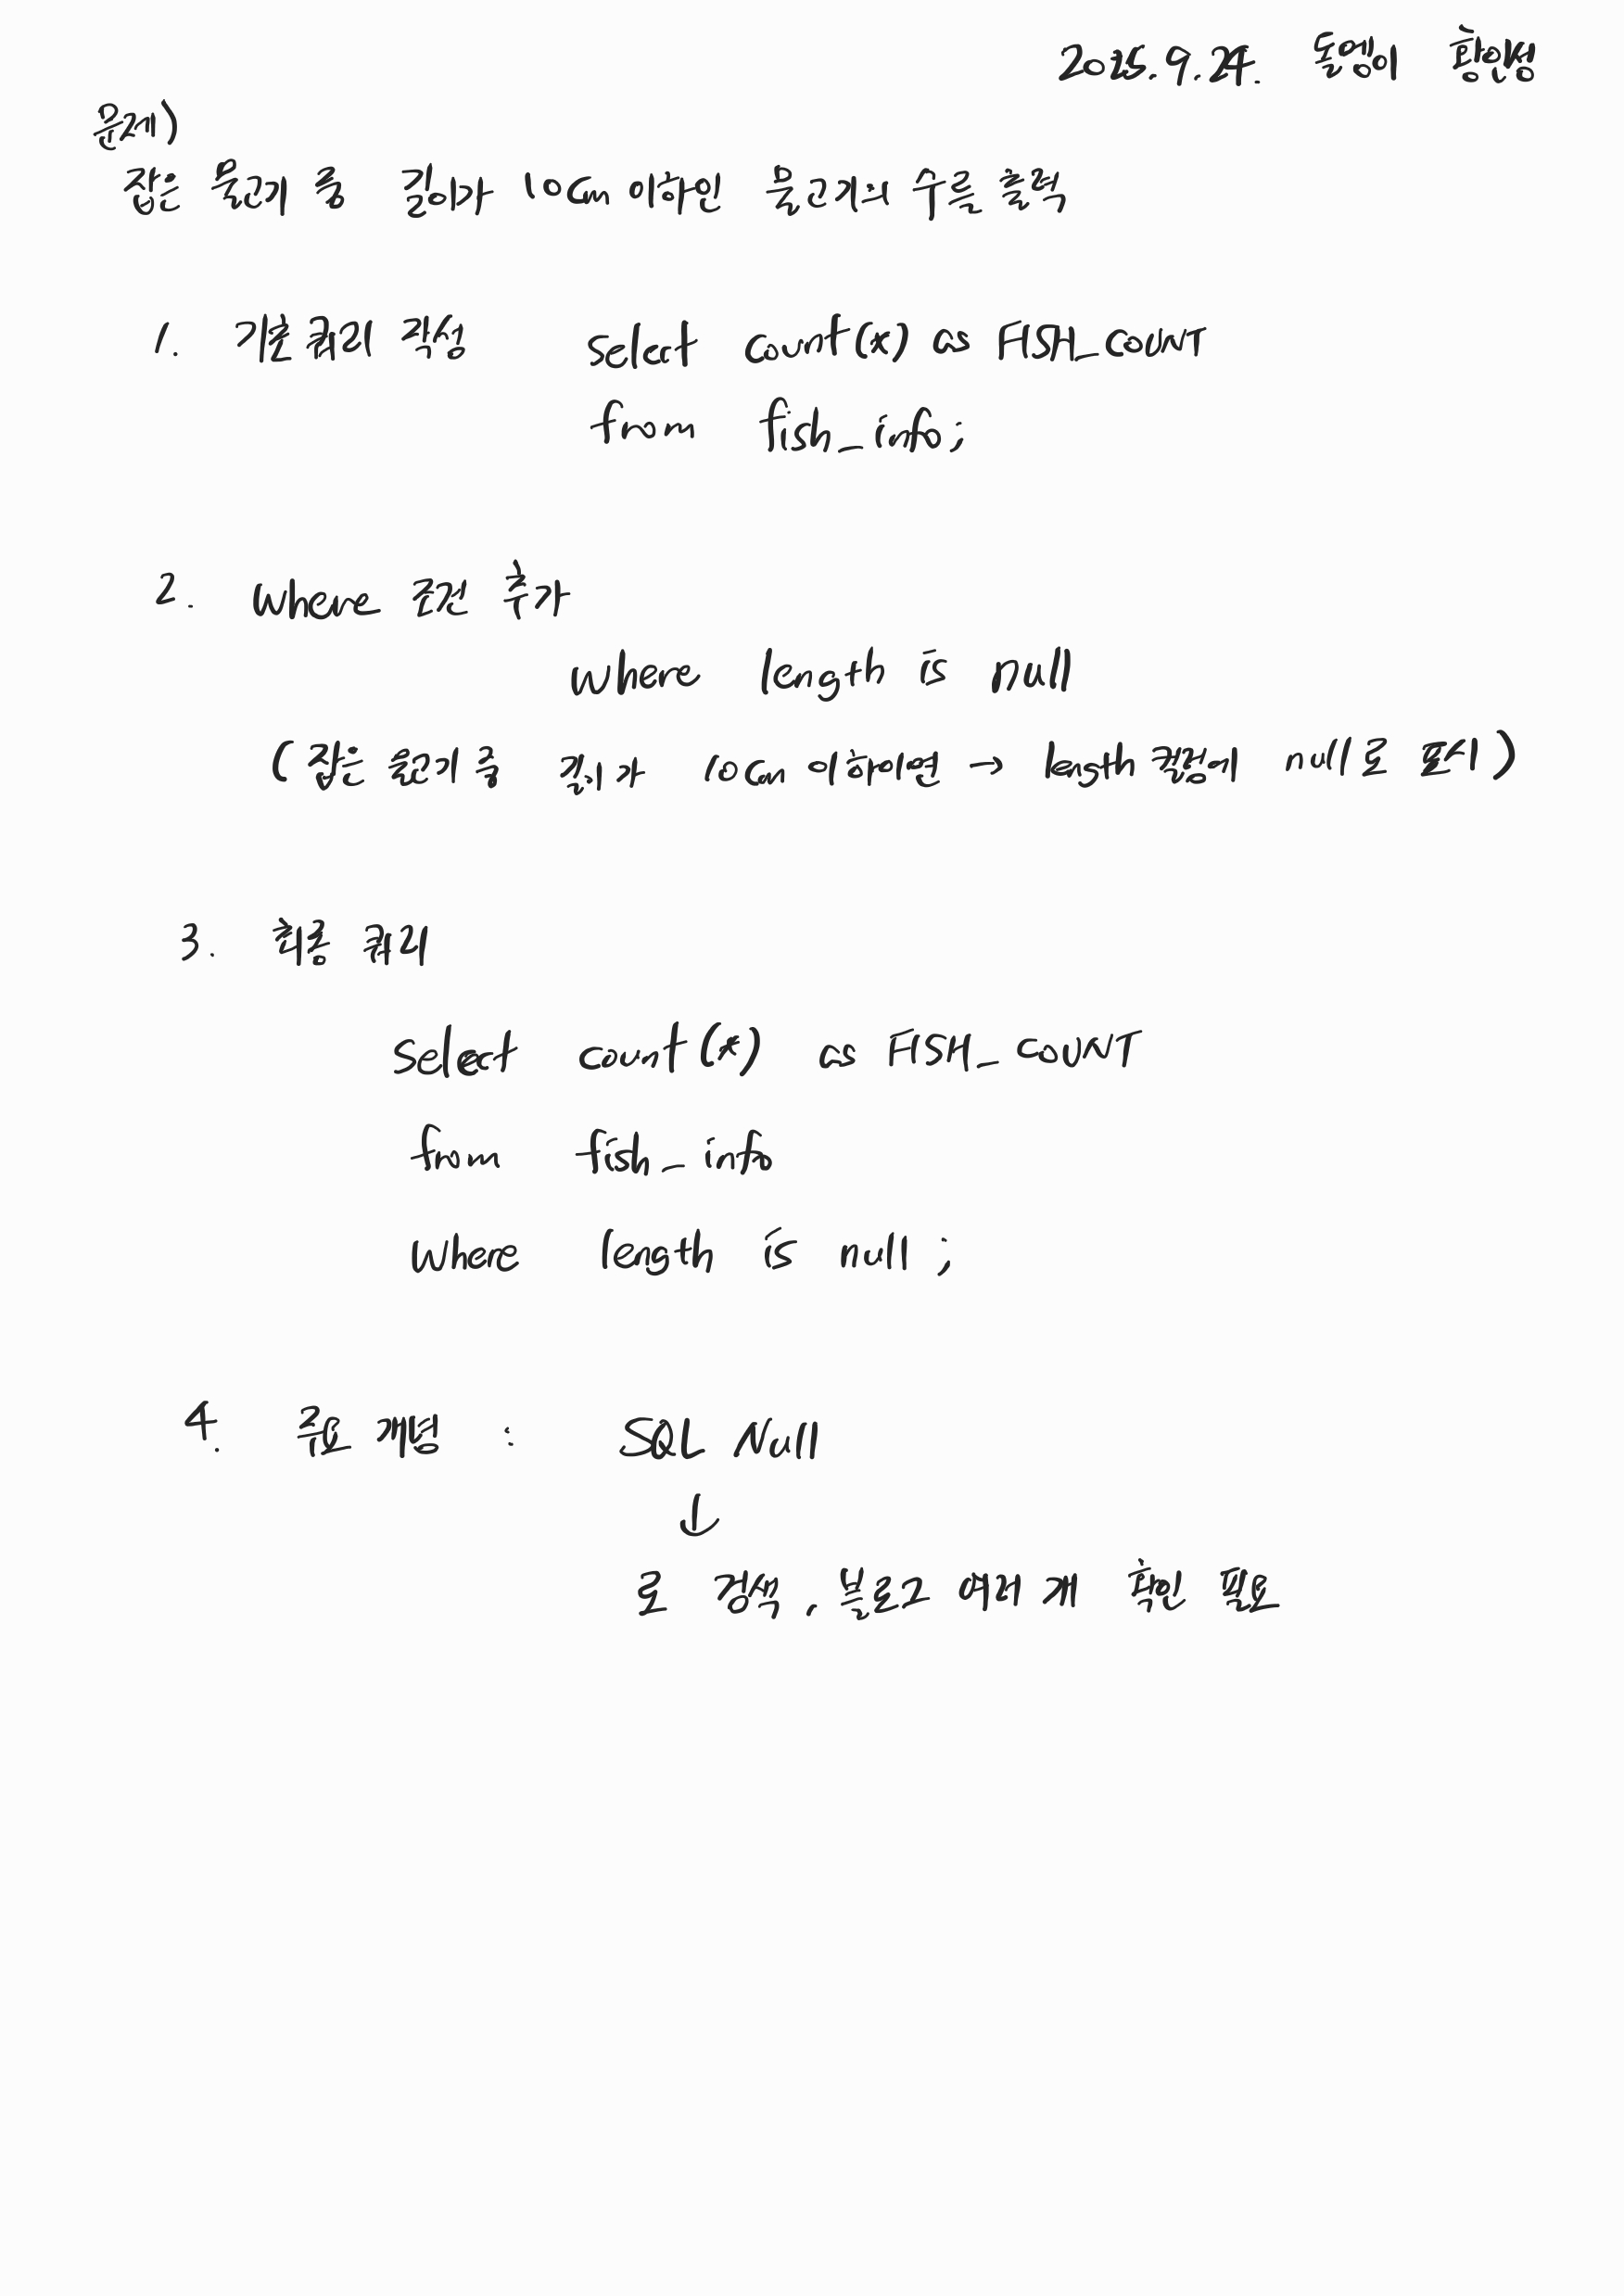 2025.9.24. 동영이 학원생
문제)
잡은 물고기 중 길이가 10cm 이하인 물고기의 수를 출력
1. 기본 쿼리 작성 select count(*) as FISH_COUNT
from fish_info;
2. where 조건 추가
where length is null
(잡은 물고기 중 길이가 10cm 이하이면 → length 컬럼에 null로 표시)
3. 최종 쿼리
select count(*) as FISH_COUNT
from fish_info
where length is null ;
4. 주요 개념 : SQL Null
↓
로 검색, 블로그 여러 개 확인 필요